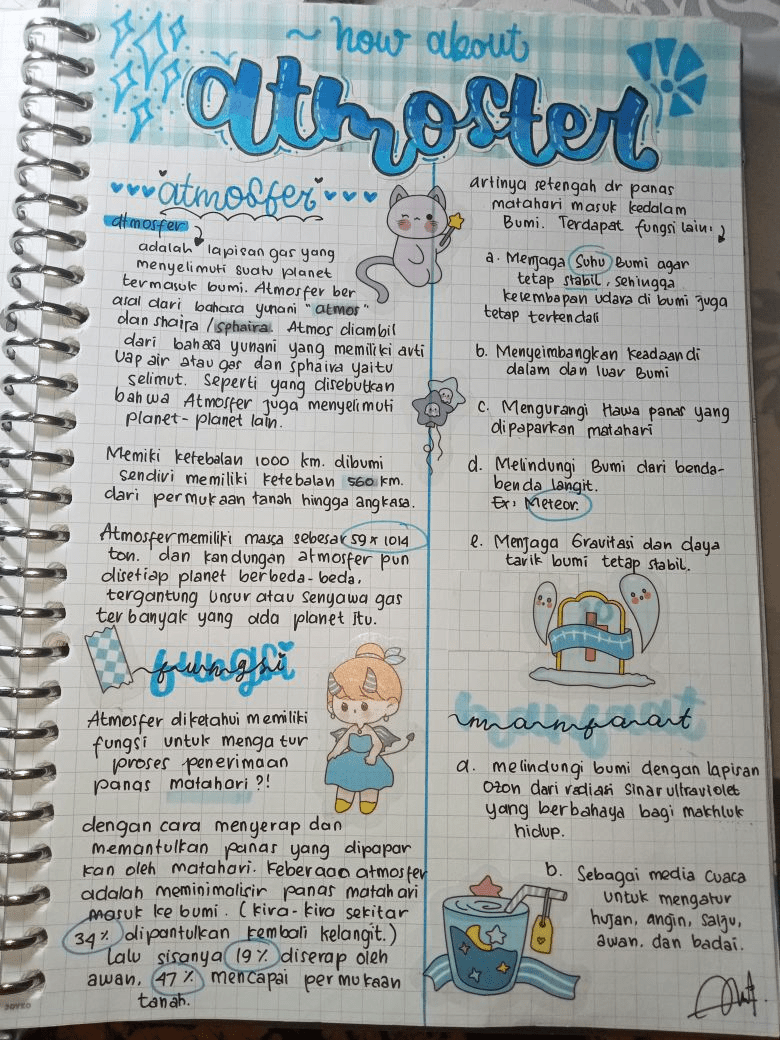 ~ how about
atmosfer
atmosfer
atmosfer
adalah lapisan gas yang
menyelimuti suatu planet
termasuk bumi. Atmosfer ber
asal dari bahasa yunani "atmos"
dan shaira / sphaira. Atmos diambil
dari bahasa yunani yang memiliki arti
Uap air atau gas dan sphaira yaitu
selimut. Seperti yang disebutkan
bahwa Atmosfer juga menyelimuti
planet-planet lain.
Memiki ketebalan 1000 km. dibumi
sendiri memiliki ketebalan 560 km.
dari permukaan tanah hingga angkasa.
Atmosfer memiliki massa sebesar 59 x 1014
ton. dan kandungan atmosfer pun
disetiap planet berbeda-beda,
tergantung unsur atau senyawa gas
terbanyak yang ada planet itu.
fungsi
Atmosfer diketahui memiliki
fungsi untuk mengatur
proses penerimaan
panas matahari ?!
dengan cara menyerap dan
memantulkan panas yang dipapar
kan oleh matahari. Keberaaa atmosfer
adalah meminimalisir panas matahari
masuk ke bumi. (kira-kira sekitar
34% dipantulkan kembali kelangit.)
Lalu sisanya 19% diserap oleh
awan, 47% mencapai permukaan
tanah.
artinya setengah dr panas
matahari masuk kedalam
Bumi. Terdapat fungsi lain:
a. Menjaga Suhu Bumi agar
tetap stabil, sehingga
kelembapan udara di bumi juga
tetap terkendali
b. Menyeimbangkan keadaan di
dalam dan luar Bumi
c. Mengurangi Hawa panas yang
dipaparkan matahari
d. Melindungi Bumi dari benda-
benda langit.
Ex: Meteor.
e. Menjaga Gravitasi dan daya
tarik bumi tetap stabil.
manfaat
a. melindungi bumi dengan lapisan
Ozon dari radiasi sinar ultraviolet
yang berbahaya bagi makhluk
hidup.
b. Sebagai media Cuaca
untuk mengatur
hujan, angin, salju,
awan, dan badai.
JOYKO